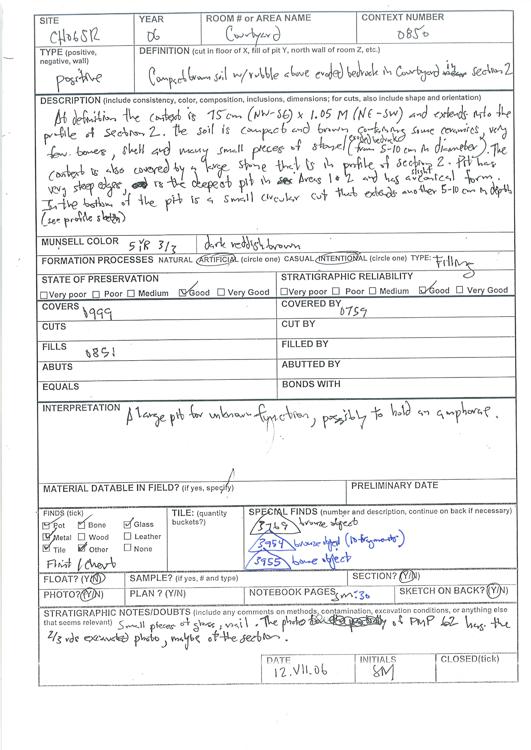 SITE YEAR ROOM # or AREA NAME CONTEXT NUMBER
CH06SR 06 Courtyard 0850
TYPE (positive, negative, wall) DEFINITION (cut in floor of X, fill of pit Y, north wall of room Z, etc.)
positive Compact brown soil w/rubble above eroded bedrock in Courtyard in section 2
DESCRIPTION (include consistency, color, composition, inclusions, dimensions; for cuts, also include shape and orientation)
At definition the context is 75cm (NW-SE) x 1.05 M (NE-SW) and extends into the
profile of section 2. The soil is compact and brown containing some ceramics, very
few bones, shell and many small pieces of stone (eroded bedrock) (from 5-10 cm in diameter). The
context is also covered by a large stone that is in profile of section 2. Pit has
very steep edges, is the deepest pit in Areas 1 & 2 and has a slight conical form.
In the bottom of the pit is a small circular cut that extends another 5-10 cm in depth
(see profile sketch)
MUNSELL COLOR 5 YR 3/3 dark reddish brown
FORMATION PROCESSES NATURAL ARTIFICIAL (circle one) CASUAL INTENTIONAL (circle one) TYPE: Filling
STATE OF PRESERVATION STRATIGRAPHIC RELIABILITY
Very poor Poor Medium Good Very Good Very poor Poor Medium Good Very Good
COVERS 0999 COVERED BY 0759
CUTS CUT BY
FILLS 0851 FILLED BY
ABUTS ABUTTED BY
EQUALS BONDS WITH
INTERPRETATION A large pit for unknown function, possibly to hold an amphorae.
MATERIAL DATABLE IN FIELD? (if yes, specify) PRELIMINARY DATE
FINDS (tick) TILE: (quantity buckets?) SPECIAL FINDS (number and description, continue on back if necessary)
Pot Bone Glass 3769 bronze object
Metal Wood Leather 3954 bronze object (in fragments)
Tile Other None 3955 bone object
Flint / Chert
FLOAT? (Y/N) SAMPLE? (if yes, # and type) SECTION? (Y/N)
PHOTO? (Y/N) PLAN ? (Y/N) NOTEBOOK PAGES SM:30 SKETCH ON BACK? (Y/N)
STRATIGRAPHIC NOTES/DOUBTS (include any comments on methods, contamination, excavation conditions, or anything else
that seems relevant) Small pieces of glass, nail. The photo of PMP 62 has the
2/3 rds excavated photo, maybe of the section.
DATE INITIALS CLOSED(tick)
12.VII.06 SM